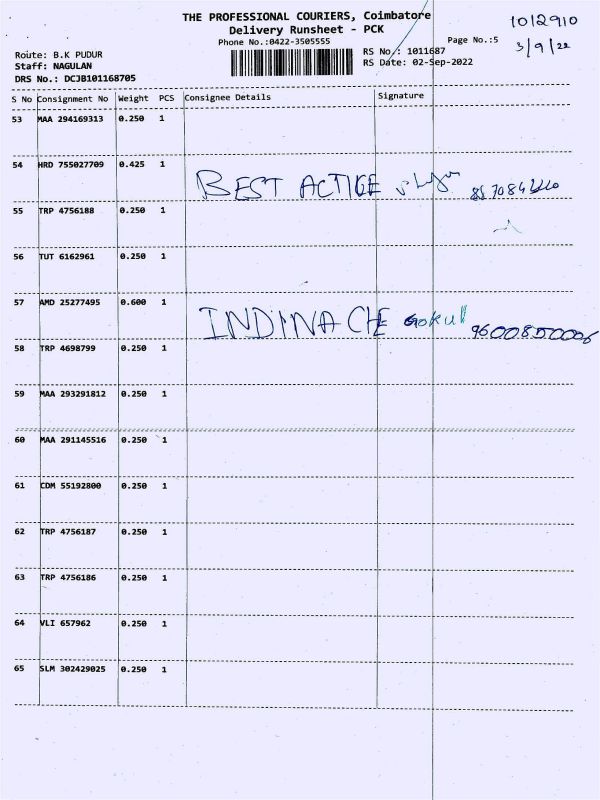 THE PROFESSIONAL COURIERS, Coimbatore
1012910
Delivery Runsheet - PCK
Phone No.:0422-3505555
Page No.:5
3/9/22
Route: B.K PUDUR
RS No.: 1011687
Staff: NAGULAN
RS Date: 02-Sep-2022
DRS No.: DCJB101168705
S No Consignment No Weight PCS Consignee Details Signature
53 MAA 294169313 0.250 1
54 HRD 755027709 0.425 1 BEST ACTIGE
55 TRP 4756188 0.250 1
56 TUT 6162961 0.250 1
57 AMD 25277495 0.600 1 INDINA CHE Gokul 9600850006
58 TRP 4698799 0.250 1
59 MAA 293291812 0.250 1
60 MAA 291145516 0.250 1
61 CDM 55192800 0.250 1
62 TRP 4756187 0.250 1
63 TRP 4756186 0.250 1
64 VLI 657962 0.250 1
65 SLM 302429025 0.250 1